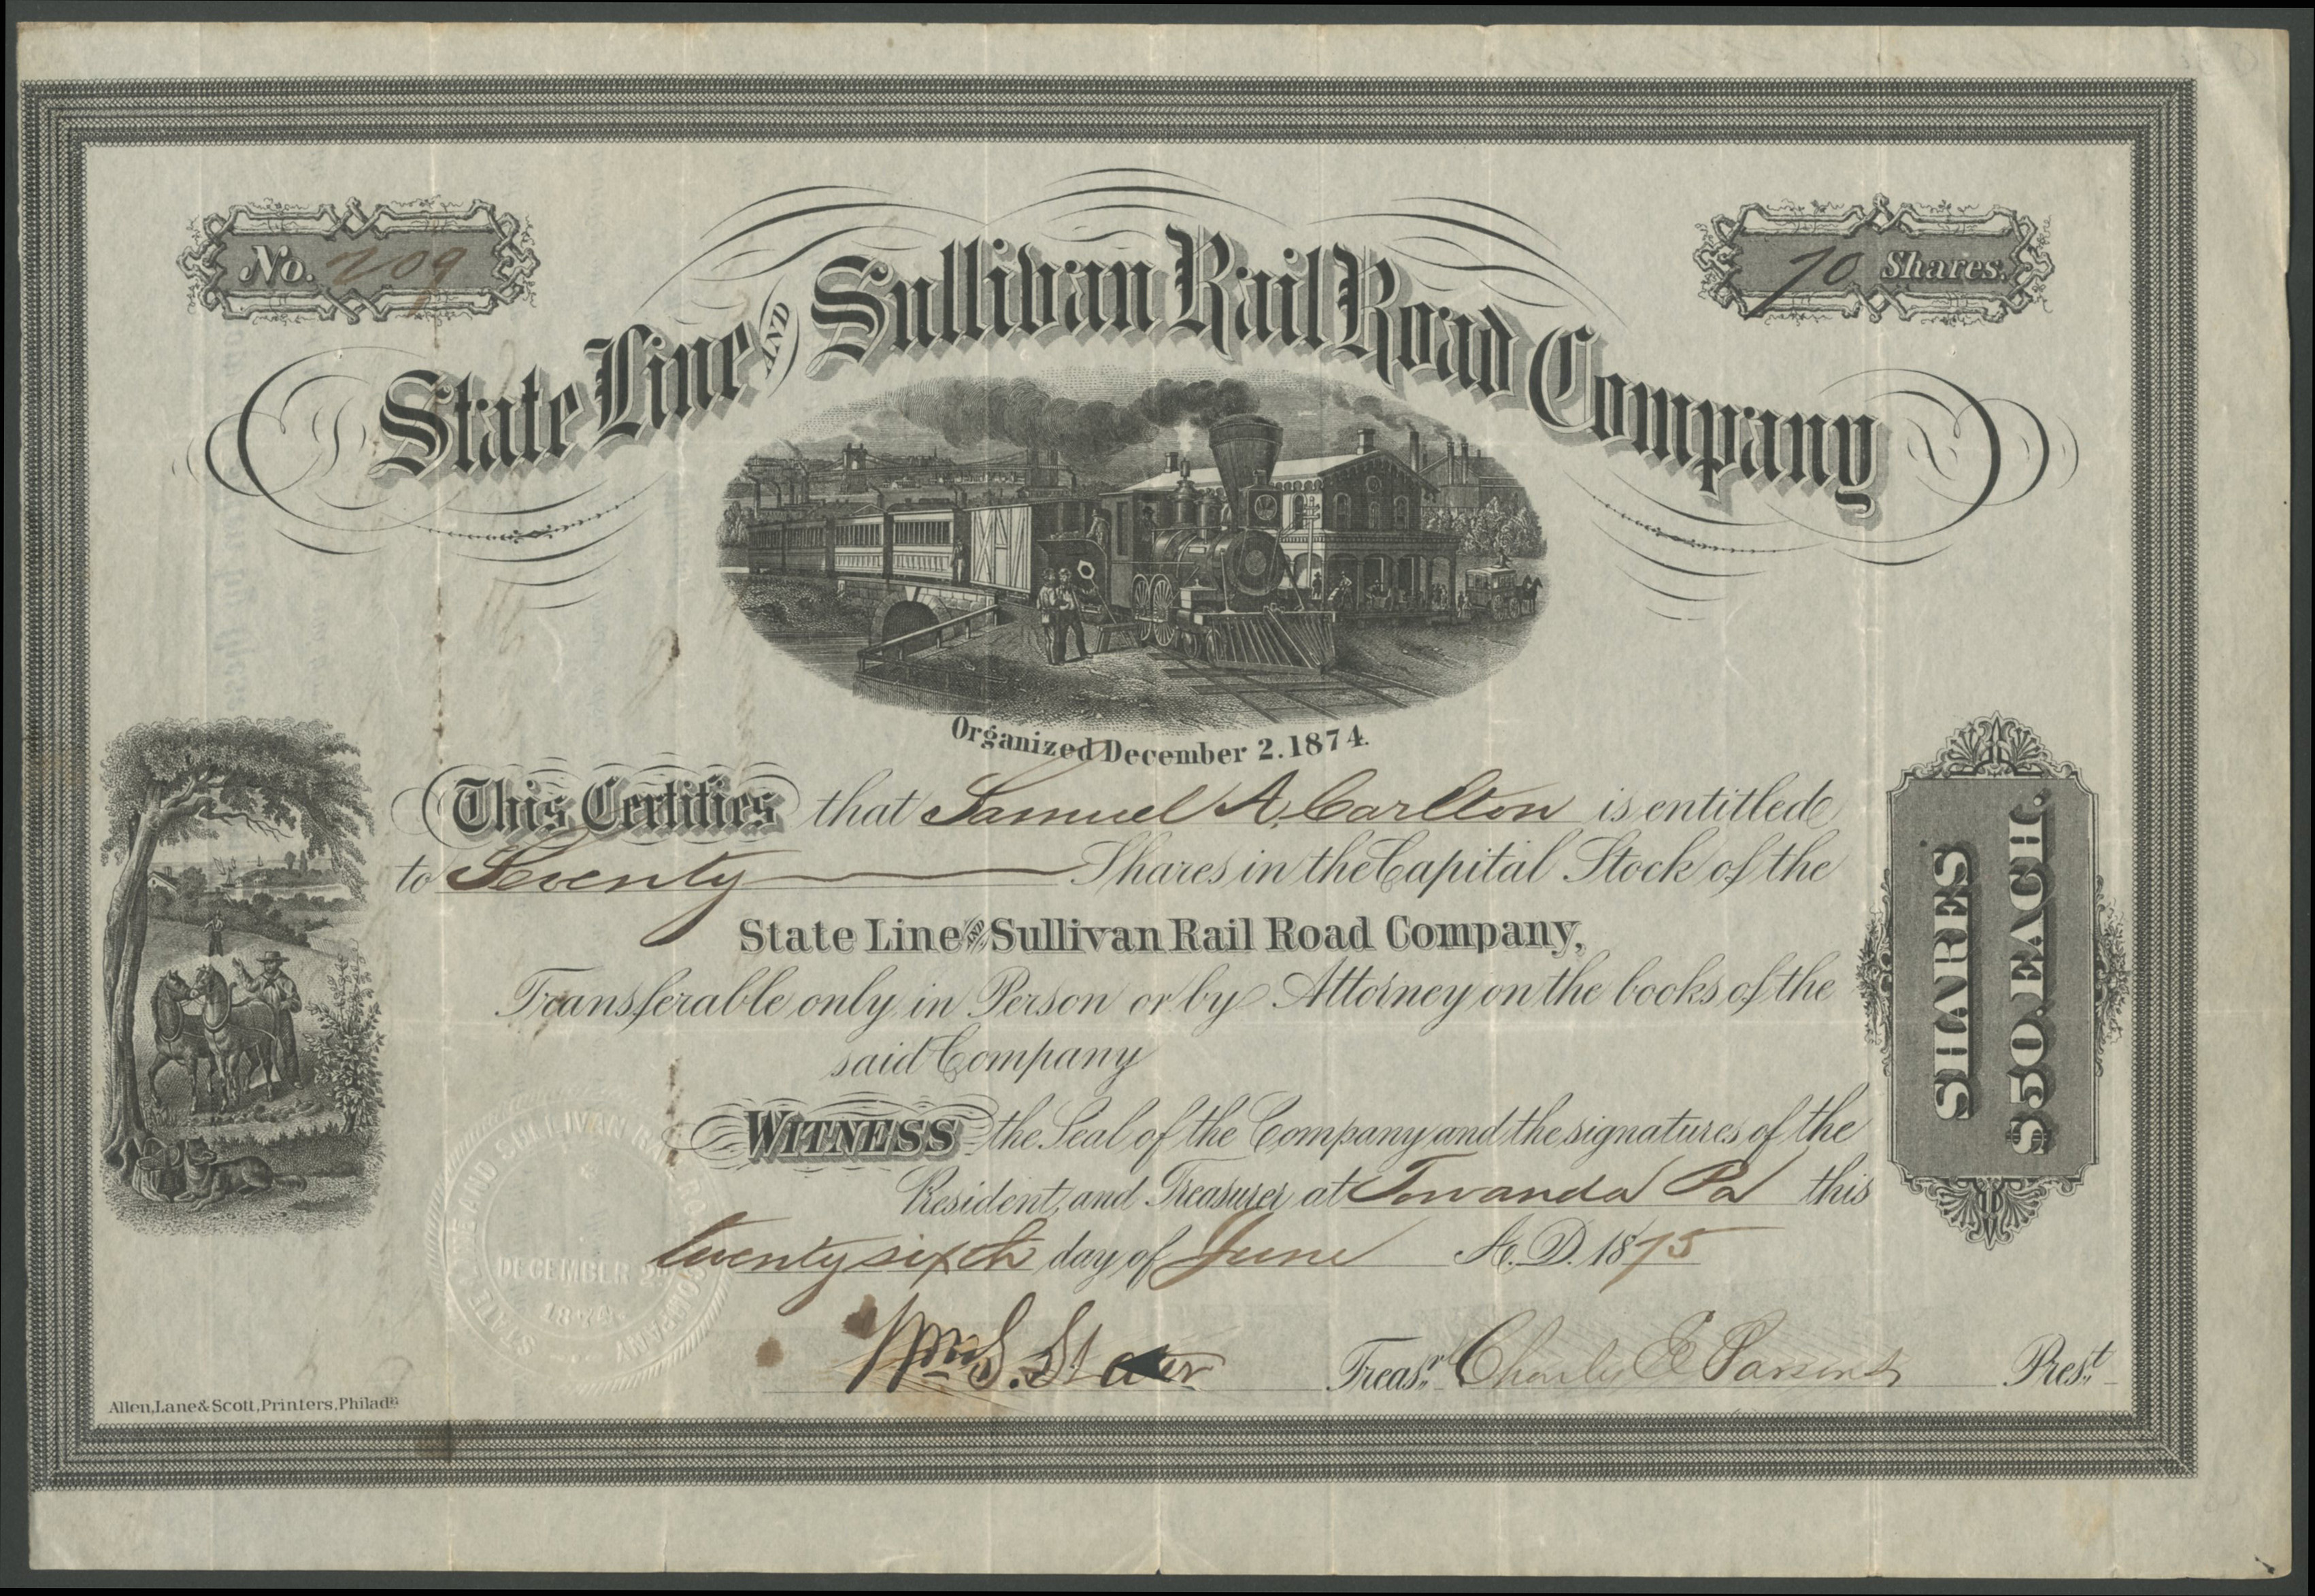 No. 209
70 Shares.
State Line AND Sullivan Rail Road Company
Organized December 2. 1874.
This Certifies that Samuel A. Carlton is entitled
to Seventy Shares in the Capital Stock of the
State Line AND Sullivan Rail Road Company,
Transferable only in Person or by Attorney on the books of the
said Company
WITNESS the Seal of the Company and the signatures of the
President, and Treasurer, at Towanda Pa this
twentysixth day of June A.D. 1875
Wm S. Treasr. Charles E Parsons Prest.
SHARES
$50. EACH.
STATE LINE AND SULLIVAN RAIL ROAD COMPANY
DECEMBER 2
1874.
Allen, Lane & Scott, Printers, Philada.